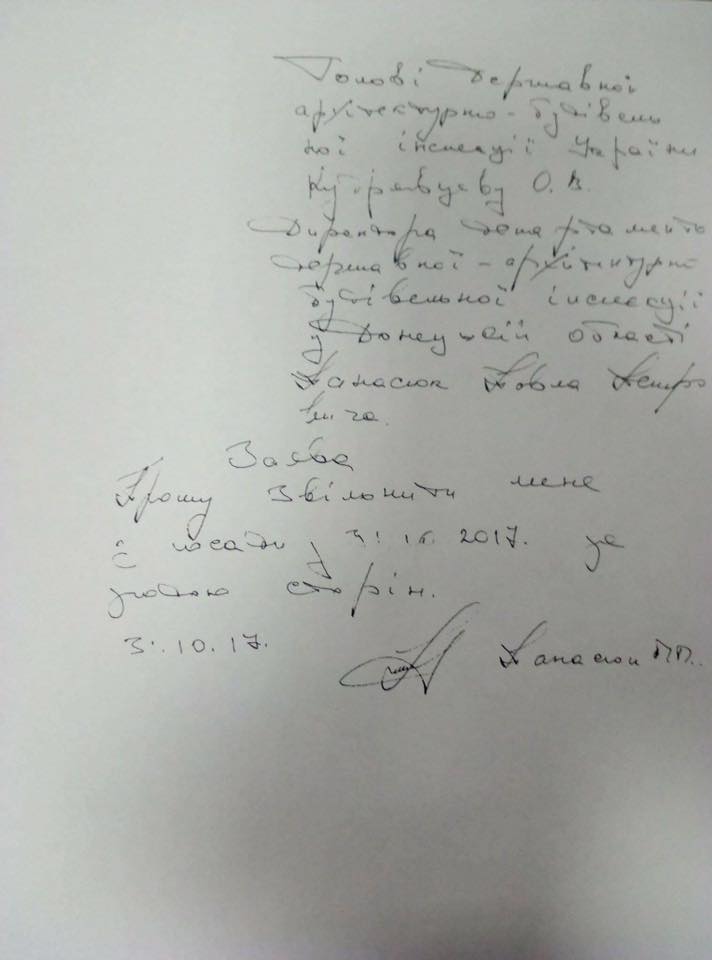 Голові Державної
архітектурно-будівель
ної інспекції України
Кудрявцеву О.В.
Директора департаменту
державної-архітектурно
будівельної інспекції
у Донецькій області
Панасюк Павла Петро
вича.
Заява
Прошу звільнити мене
з посади з 31.10.2017. за
згодою сторін.
31.10.17.
Панасюк П.П.